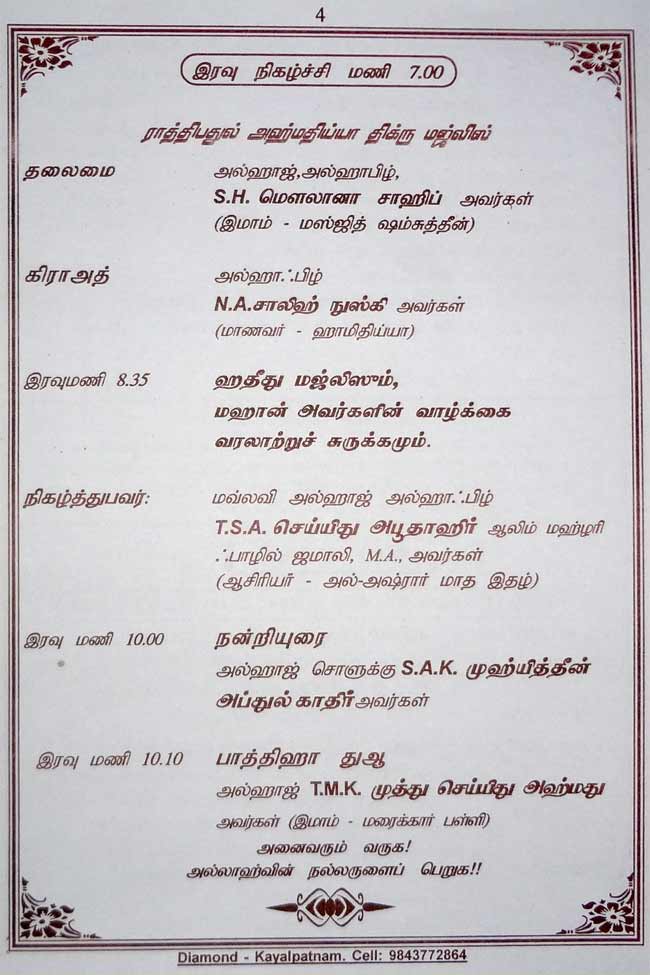 4
இரவு நிகழ்ச்சி மணி 7.00
ராத்திபதுல் அஹ்மதிய்யா திக்ரு மஜ்லிஸ்
தலைமை அல்ஹாஜ்,அல்ஹாபிழ்,
S.H. மௌலானா சாஹிப் அவர்கள்
(இமாம் - மஸ்ஜித் ஷம்சுத்தீன்)
கிராஅத் அல்ஹாஃபிழ்
N.A.சாலிஹ் நுஸ்கி அவர்கள்
(மாணவர் - ஹாமிதிய்யா)
இரவுமணி 8.35 ஹதீது மஜ்லிஸும்,
மஹான் அவர்களின் வாழ்க்கை
வரலாற்றுச் சுருக்கமும்.
நிகழ்த்துபவர்: மவ்லவி அல்ஹாஜ் அல்ஹாஃபிழ்
T.S.A. செய்யிது அபூதாஹிர் ஆலிம் மஹ்ழரி
ஃபாழில் ஜமாலி, M.A., அவர்கள்
(ஆசிரியர் - அல்-அஷ்ரார் மாத இதழ்)
இரவு மணி 10.00 நன்றியுரை
அல்ஹாஜ் சொளுக்கு S.A.K. முஹ்யித்தீன்
அப்துல் காதிர் அவர்கள்
இரவு மணி 10.10 பாத்திஹா துஆ
அல்ஹாஜ் T.M.K. முத்து செய்யிது அஹ்மது
அவர்கள் (இமாம் - மரைக்கார் பள்ளி)
அனைவரும் வருக!
அல்லாஹ்வின் நல்லருளைப் பெறுக!!
Diamond - Kayalpatnam. Cell: 9843772864